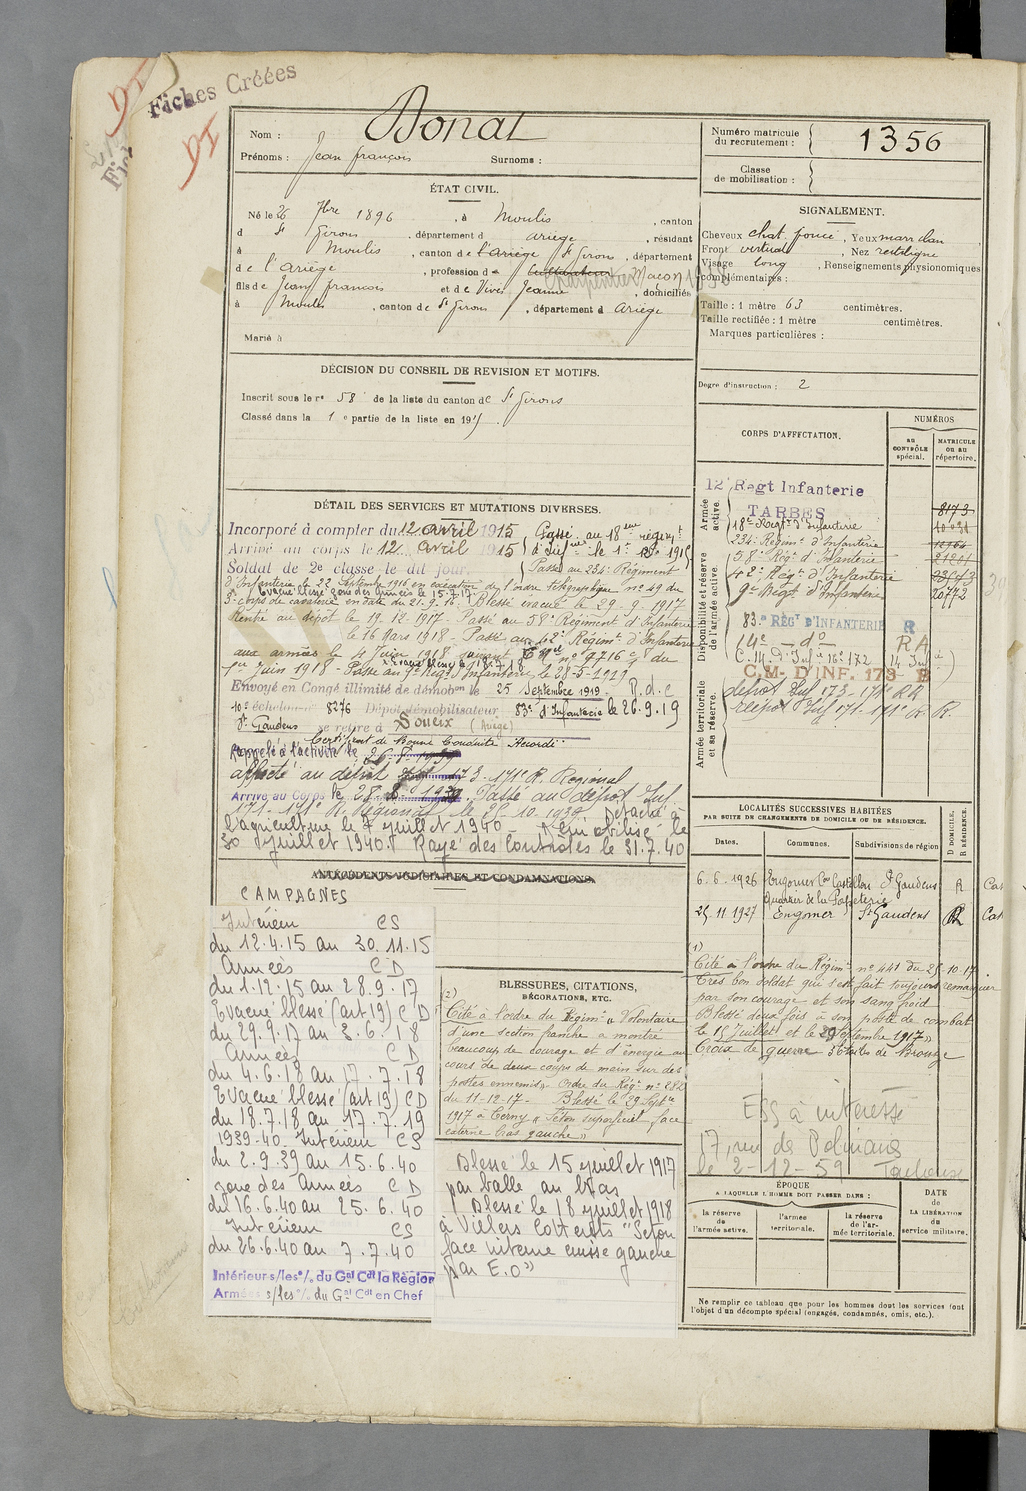 Fiches Créées
DI
DI
Nom : Bonat
Prénoms : Jean françois Surnoms :
Numéro matricule du recrutement : 1356
Classe de mobilisation :
ÉTAT CIVIL.
Né le 26 7bre 1896, à Moulis, canton
d St Girons, département d ariège, résidant
à Moulis, canton de l'ariège St Girons, département
de l'Ariège, profession de Cultivateur Charpentier Maçon
fils de Jean françois et de Vives Jeanne, domiciliés
à Moulis, canton de St Girons, département d Ariège
Marié à
SIGNALEMENT.
Cheveux chat. foncé, Yeux marr clair
Front vertical, Nez rectiligne
Visage long, Renseignements physionomiques
complémentaires :
Taille : 1 mètre 63 centimètres.
Taille rectifiée : 1 mètre centimètres.
Marques particulières :
DÉCISION DU CONSEIL DE REVISION ET MOTIFS.
Inscrit sous le n° 58 de la liste du canton de St Girons
Classé dans la 1 e partie de la liste en 1915.
Degré d'instruction : 2
CORPS D'AFFECTATION.
NUMÉROS
au CONTRÔLE spécial.
MATRICULE ou au répertoire.
Armée active.
Disponibilité et réserve de l'armée active.
Armée territoriale et sa réserve.
12e Regt Infanterie
TARBES 8173
18e Regt d'Infanterie
234e Régimt d'Infanterie
58e Régt d'Infanterie
42e Régt d'Infanterie
9e Régt d'Infanterie
83e RÉGt D'INFANTERIE R
14e do RA
C.M. D'INF. 173 B
dépot Inf 173 - 171e R R
dépot Inf 171 - 171e R. R.
DÉTAIL DES SERVICES ET MUTATIONS DIVERSES.
Incorporé à compter du 12 avril 1915 Passé au 18eme régimt
Arrivé au corps le 12 avril 1915 d'Infrie le 1er Xbre 1915
Soldat de 2e classe le dit jour. Passé au 234e Régiment
d'Infanterie le 22 Septembre 1916 en exécution de l'ordre télégraphique n° 49 du
Evacué blessé zone des Armées le 15.7.17
3e corps de cavalerie en date du 21.9.16. Blessé évacué le 29.9.1917
Rentré au dépôt le 19.12.1917 - Passé au 58e Régiment d'Infanterie
le 16 Mars 1918 - Passé au 42e Régimt d'Infanterie
aux armées le 4 Juin 1918 suivant n° 9716 du
1er Juin 1918 - Passé au 9e Régt d'Infanterie le 28-5-1919
Envoyé en Congé illimité de démobon le 25 Septembre 1919 - R.d.c
10e échelon n° 8276 Dépôt démobilisateur 83e d'Infanterie le 26.9.19
St Gaudens se retire à Soueix (Ariège)
Certificat de Bonne Conduite Accordé
Rappelé à l'activité le
affecté au dépot 173 - 171e R. Régional
Arrivé au Corps le 28. Passé au dépot Inf.
171 - 171e R. Régional le 25-10-1939 Détaché à
l'agriculture le 7 juillet 1940 Démobilisé le
30 Juillet 1940. Rayé des Contrôles le 31.7.40
ANTÉCÉDENTS JUDICIAIRES ET CONDAMNATIONS.
CAMPAGNES
Intérieur CS
du 12.4.15 au 30.11.15
Armées CD
du 1.12.15 au 28.9.17
Evacué blessé (art 19) CD
du 29.9.17 au 3.6.18
Armées CD
du 4.6.18 au 17.7.18
Evacué blessé (art 19) CD
du 18.7.18 au 17.7.19
1939-40. Intérieur CS
du 2.9.39 au 15.6.40
zone des Armées CD
du 16.6.40 au 25.6.40
Intérieur CS
du 26.6.40 au 7.7.40
Intérieur s/les o/. du Gal Cdt la Région
Armées s/les o/. du Gal Cdt en Chef
BLESSURES, CITATIONS,
DÉCORATIONS, ETC.
(2)
Cité à l'ordre du Régimt « Volontaire
d'une section franche a montré
beaucoup de courage et d'énergie au
cours de deux coups de main sur des
postes ennemis » Ordre du Régt n° 282
du 11-12-17 - Blessé le 29 Septe
1917 à Cerny « Séton superficiel face
externe bras gauche »
Blessé le 15 juillet 1917
par balle au bras
Blessé le 18 juillet 1918
à Villers Cotterets "Séton
face interne cuisse gauche
par E.O"
LOCALITÉS SUCCESSIVES HABITÉES
PAR SUITE DE CHANGEMENTS DE DOMICILE OU DE RÉSIDENCE.
Dates. Communes. Subdivisions de région D DOMICILE. R RÉSIDENCE
6.6.1926 Engomer Con Castillon St Gaudens R
Quartier de la Papeterie
25.11.1927 Engomer St Gaudens R
(1)
Cité à l'ordre du Régimt n° 441 du 25-10-17.
Très bon soldat qui s'est fait toujours remarquer
par son courage et son sang froid
Blessé deux fois à son poste de combat
le 15 Juillet et le 29 Septembre 1917 »
Croix de guerre 2 Etoiles de Bronze
ESS à intéressé
17, rue de
le 2-12-59 Toulouse
ÉPOQUE
A LAQUELLE L'HOMME DOIT PASSER DANS :
DATE DE LA LIBÉRATION du service militaire.
la réserve de l'armée active.
l'armée territoriale.
la réserve de l'armée territoriale.
Ne remplir ce tableau que pour les hommes dont les services font
l'objet d'un décompte spécial (engagés, condamnés, omis, etc.).